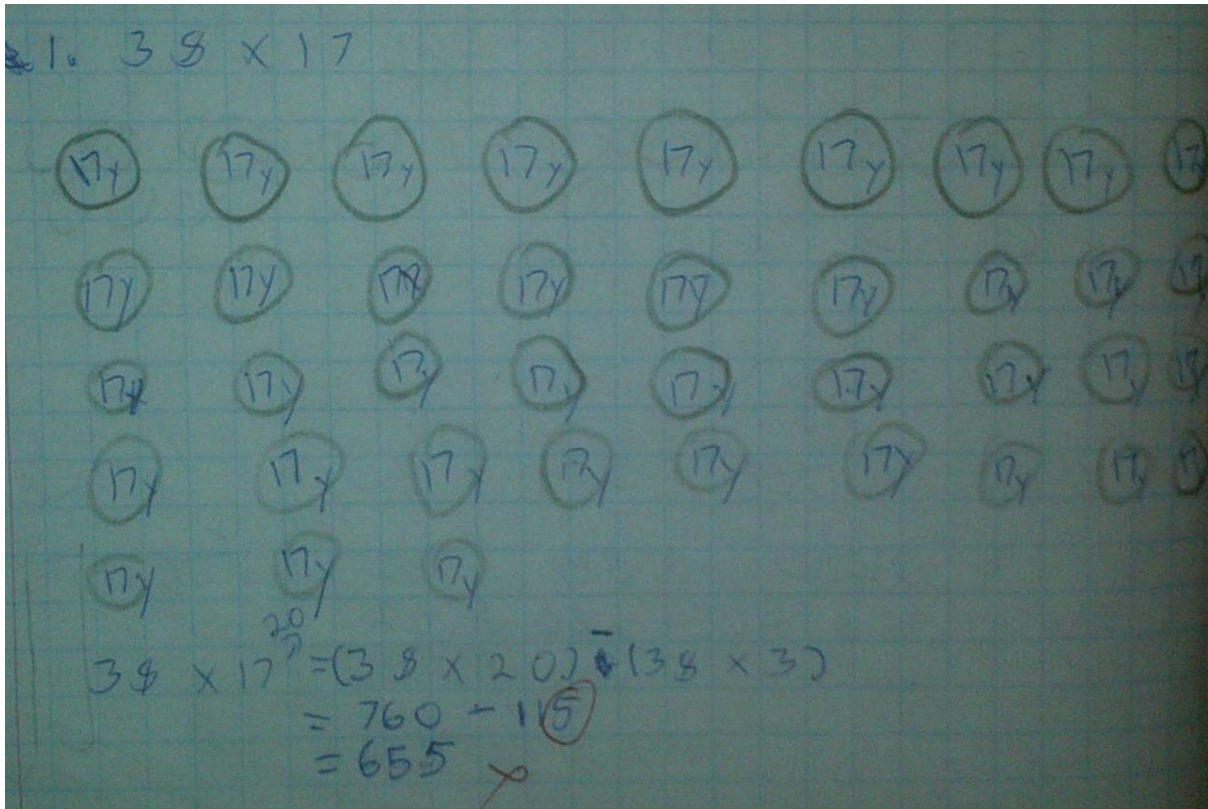 1. 38 × 17
17y 17y 17y 17y 17y 17y 17y 17y 17
17y 17y 17y 17y 17y 17y 17y 17y 17
17y 17y 17y 17y 17y 17y 17y 17y 17
17y 17y 17y 17y 17y 17y 17y 17y 17
17y 17y 17y
20
38 × 17 = (38 × 20) - (38 × 3)
= 760 - 115
= 655 ×